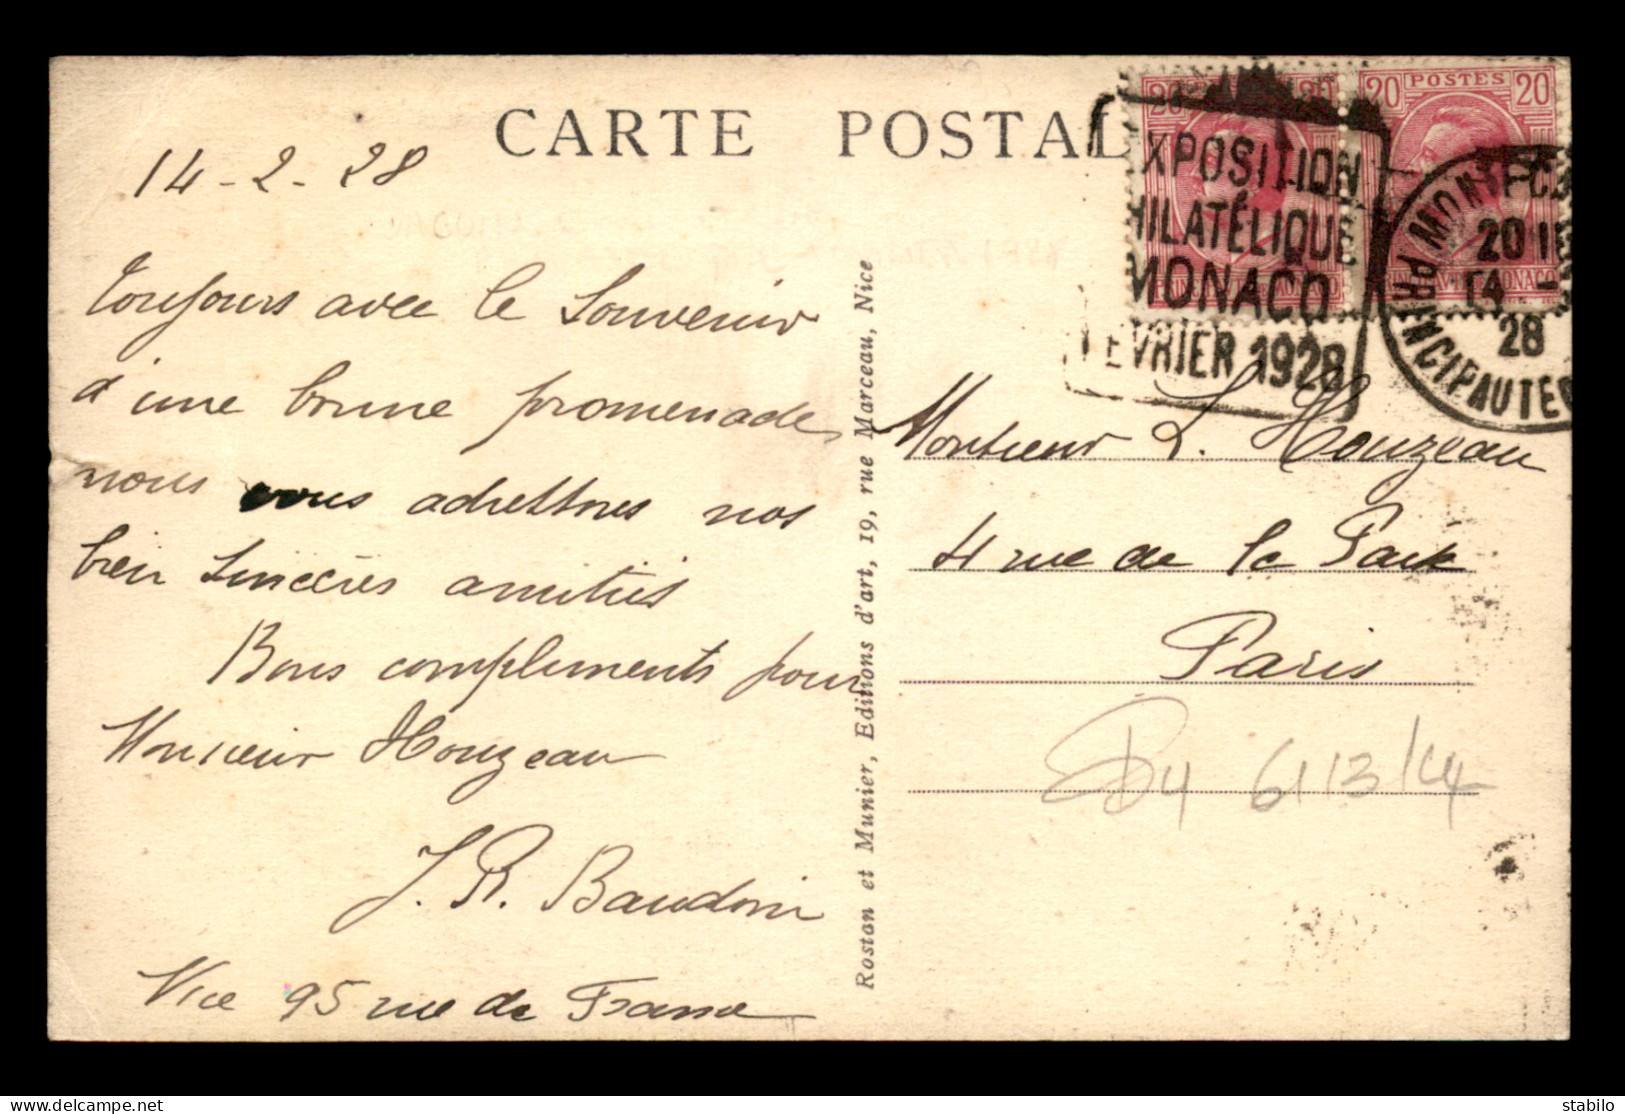 CARTE POSTAL
14-2-28
Toujours avec le Souvenir
d'une bonne promenade,
nous vous adressons nos
bien sincères amitiés
Bons compliments pour
Monsieur Houzeau
J. R. Baudoin
Nice 95 rue de France
Rostan et Munier, Editions d'art, 19, rue Marceau, Nice
20 POSTES 20
EXPOSITION
PHILATÉLIQUE
MONACO
FEVRIER 1928
MONTE-CARLO
20 II
14 -
28
PRINCIPAUTE
Monsieur L. Houzeau
4 rue de la Paix
Paris
D4 6113/14
stabilo